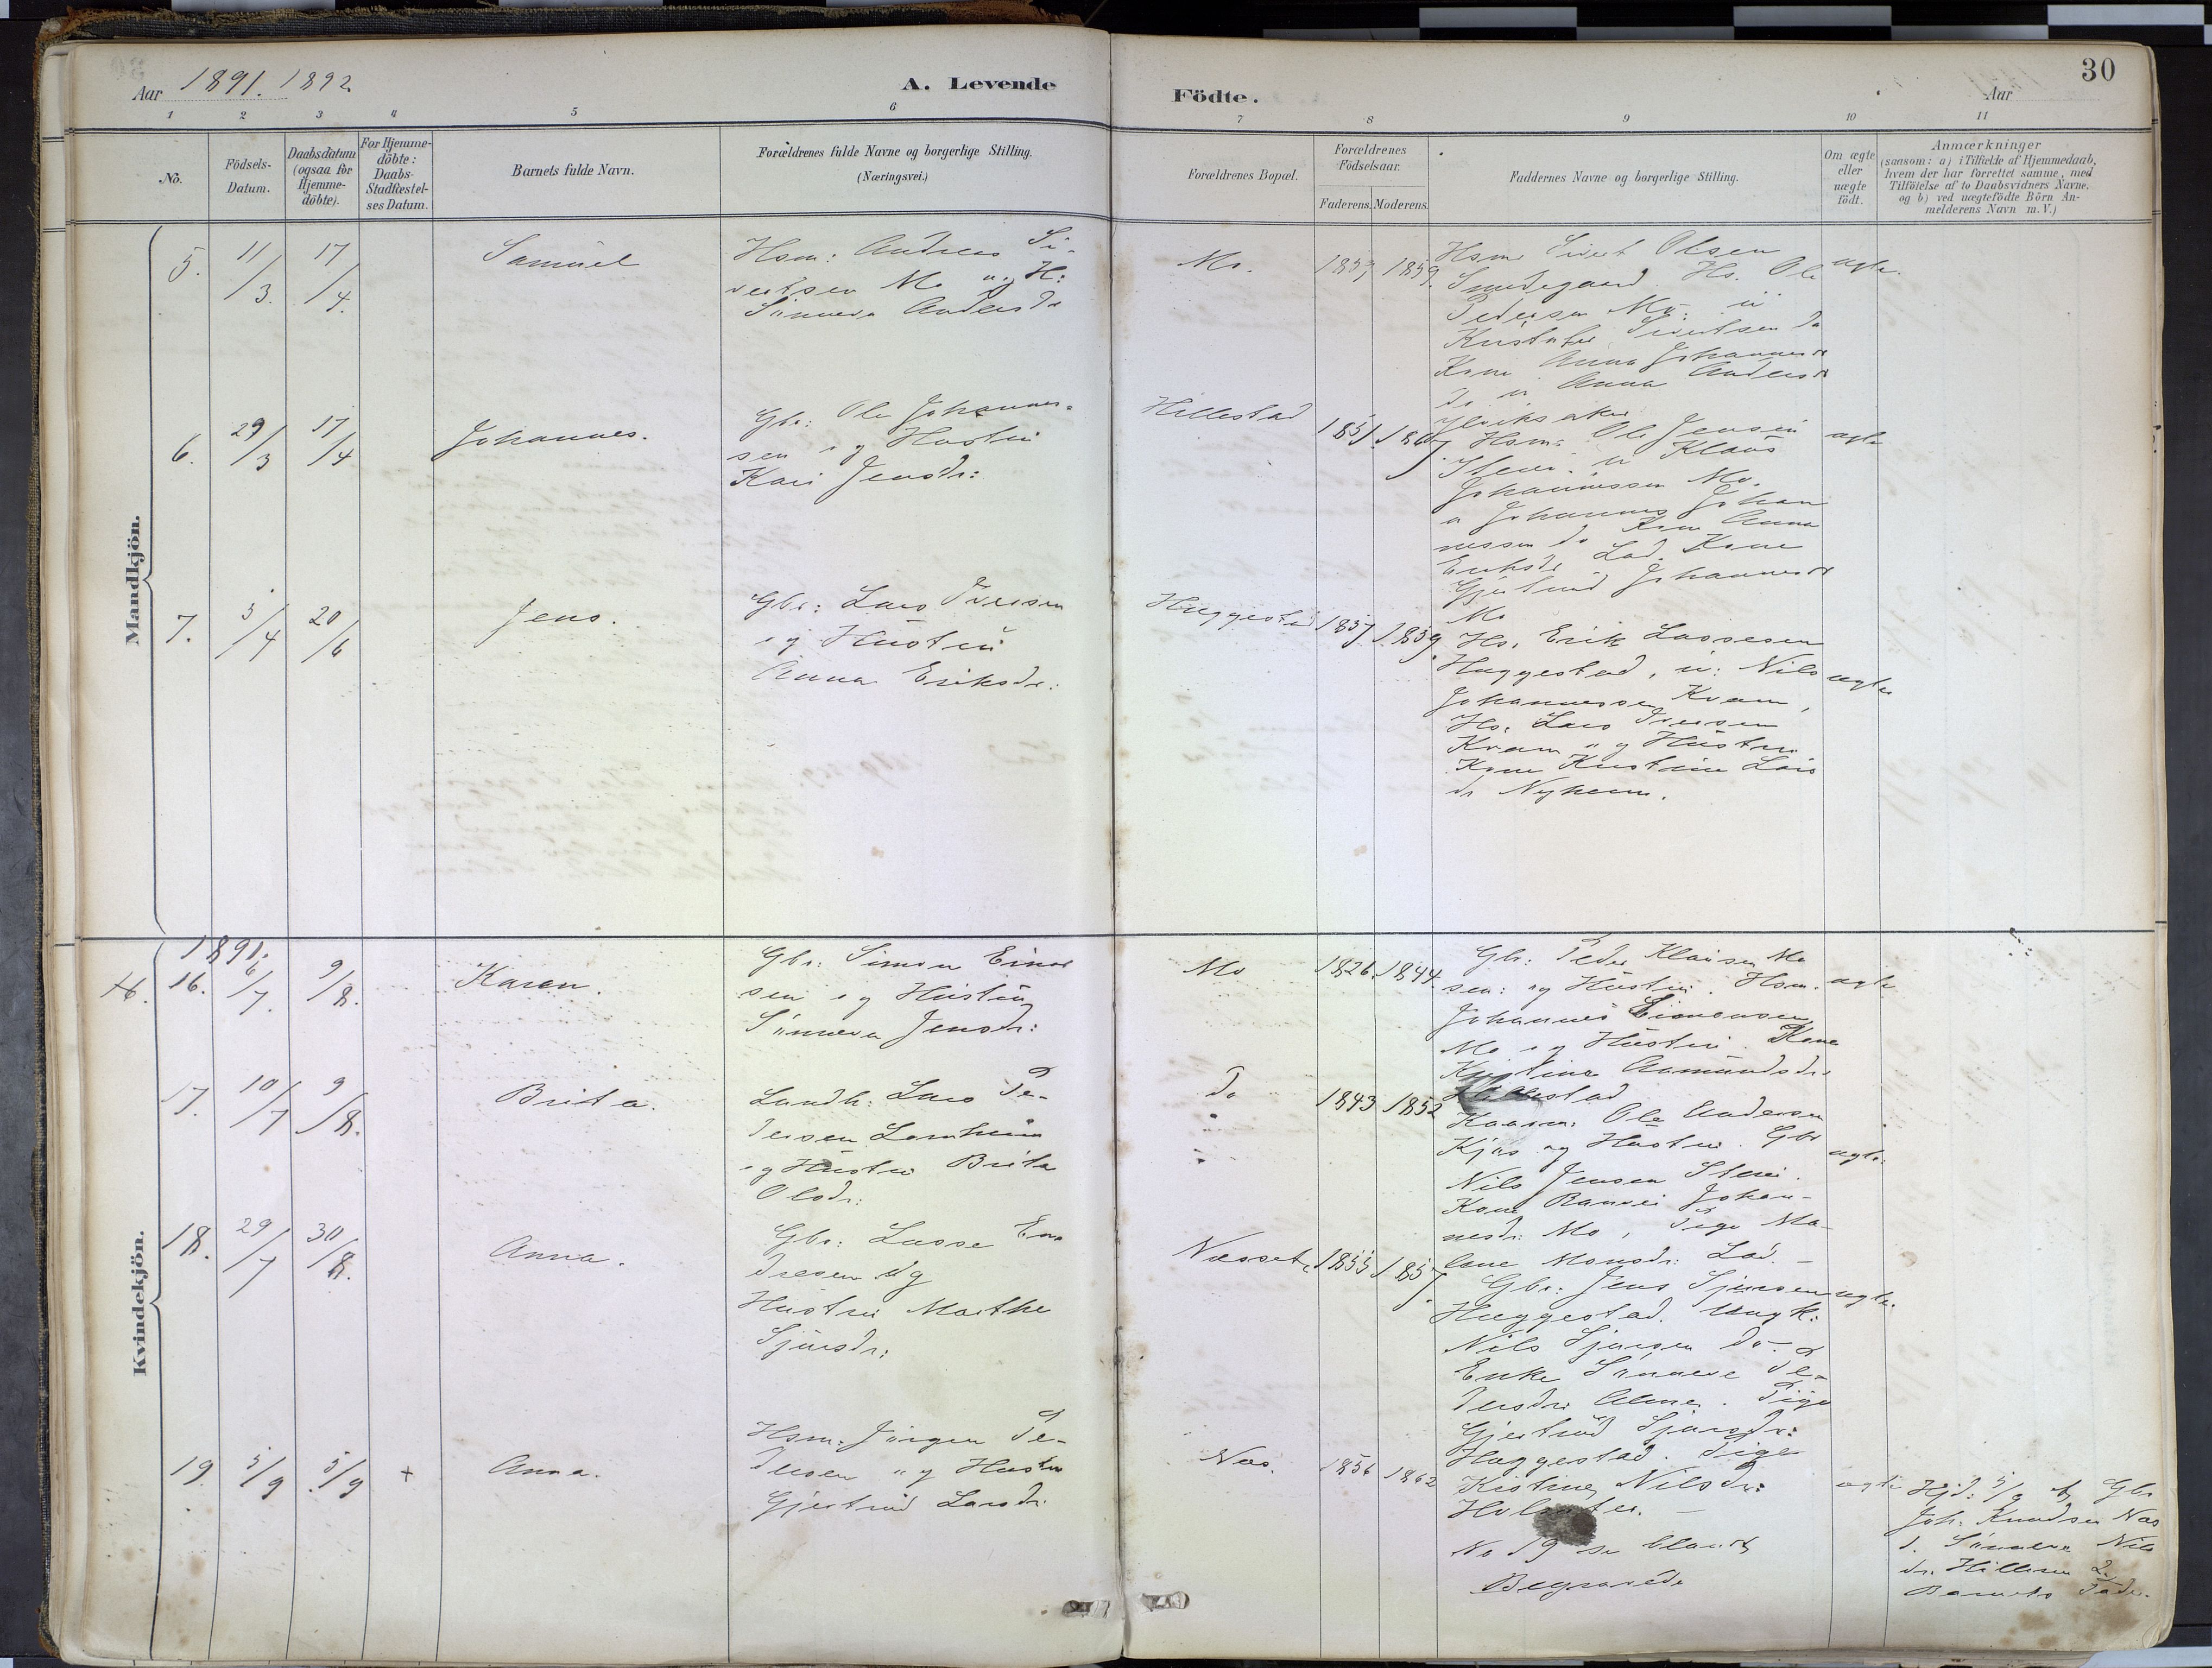 Aar 1891. 1892.
A. Levende
Födte.
Aar
30
1 2 3 4 5 6 7 8 9 10 11
No.
Födsels-
Datum.
Daabsdatum
(ogsaa for
Hjemme-
döbte).
For Hjemme-
döbte:
Daabs-
Stadfæstel-
ses Datum.
Barnets fulde Navn.
Forældrenes fulde Navne og borgerlige Stilling.
(Næringsvei.)
Forældrenes Bopæl.
Forældrenes
Födselsaar.
Faderens. Moderens.
Faddernes Navne og borgerlige Stilling.
Om ægte
eller
uægte
födt.
Anmærkninger
(saasom: a) i Tilfælde af Hjemmedaab,
hvem der har forrettet samme, med
Tilföielse af to Daabsvidners Navne.
og b) ved uægtefödte Börn An-
melderens Navn m.V.)
Mandkjön.
5. 11/3. 17/4.
Samuel
Hsm: Andreas Si-
vertsen Mo og H:
Sünneva Andersdr
Mo. 1859 1859.
Hsm Sivert Olsen
Smedegaard. Hs. Ole
Pedersen Mo: u
Sivertsen do
Kone Anna Johannesdr
do u Anna Andersdr
ægte.
6. 29/3 17/4
Johannes.
Gbr: Ole Johannes-
sen og Hustru
Kari Jensdr:
Hillestad 1851. 1867
Hsm: Ole Jensen
u Klaus
Johannessen Mo.
u Johannes Johan
nessen do Kone Anna
Eriksdr Lad. Kone
Gjertrud Johannesdr
Mo
ægte
7. 5/4 20/6
Jens.
Gbr: Lars Iversen
og Hustru
Anna Eriksdr:
Huggestad 1857 1859.
Hs. Erik Lassesen
Huggestad, u: Nils
Johannessen Kvam,
Hs. Lars Iversen
Kvam og Hustru
Kone Kristine Lars
dr Nyheim.
ægte
Kvindekjön.
1891.
16. 16. 6/7. 9/8.
Karen.
Gbr: Simon Einar
sen og Hustru
Sünneva Jensdr:
Mo 1826. 1844.
Gbr: Peder Klausen Mo
sen: og Hustru. Hsm.
Johannes Simonsen
Mo og Hustru. Kone
Kristine Aamundsdr
Hillestad
ægte
17. 10/7 9/8.
Brita.
Landh: Lars Pe-
dersen Lomheim
og Hustru Brita
Olsdr:
Do 1843 1852
Ole Andersen
og Hustru. Gbr
Nils Jensen
Kone Johan-
nesdr: Mo, Pige Ma-
lene Monsdr: Lad.-
ægte:
18. 29/7 30/8.
Anna.
Gbr: Lasse En-
dresen og
Hustru Marthe
Sjursdr:
Næsset. 1855 1857.
Gbr: Jens Sjursen
Huggestad. Ungk:
Nils Sjursen do.
Enke Sünneve Pe-
dersdr: . Pige
Gjertrud Sjursdr:
Huggestad. Pige
Kistine Nilsdr:
ægte.
19. 5/9 5/9 +
Anna.
Hsm: Jürgen Pe-
dersen og Hustru
Gjertrud Larsdr.
Næs. 1856 1862
No 19 se blandt
Begravede
ægte
Hjd: 5/9 af Gbr
Joh. Knudsen Næs
1. Sünneva Nils
dr. 2.
Barnets Fader.